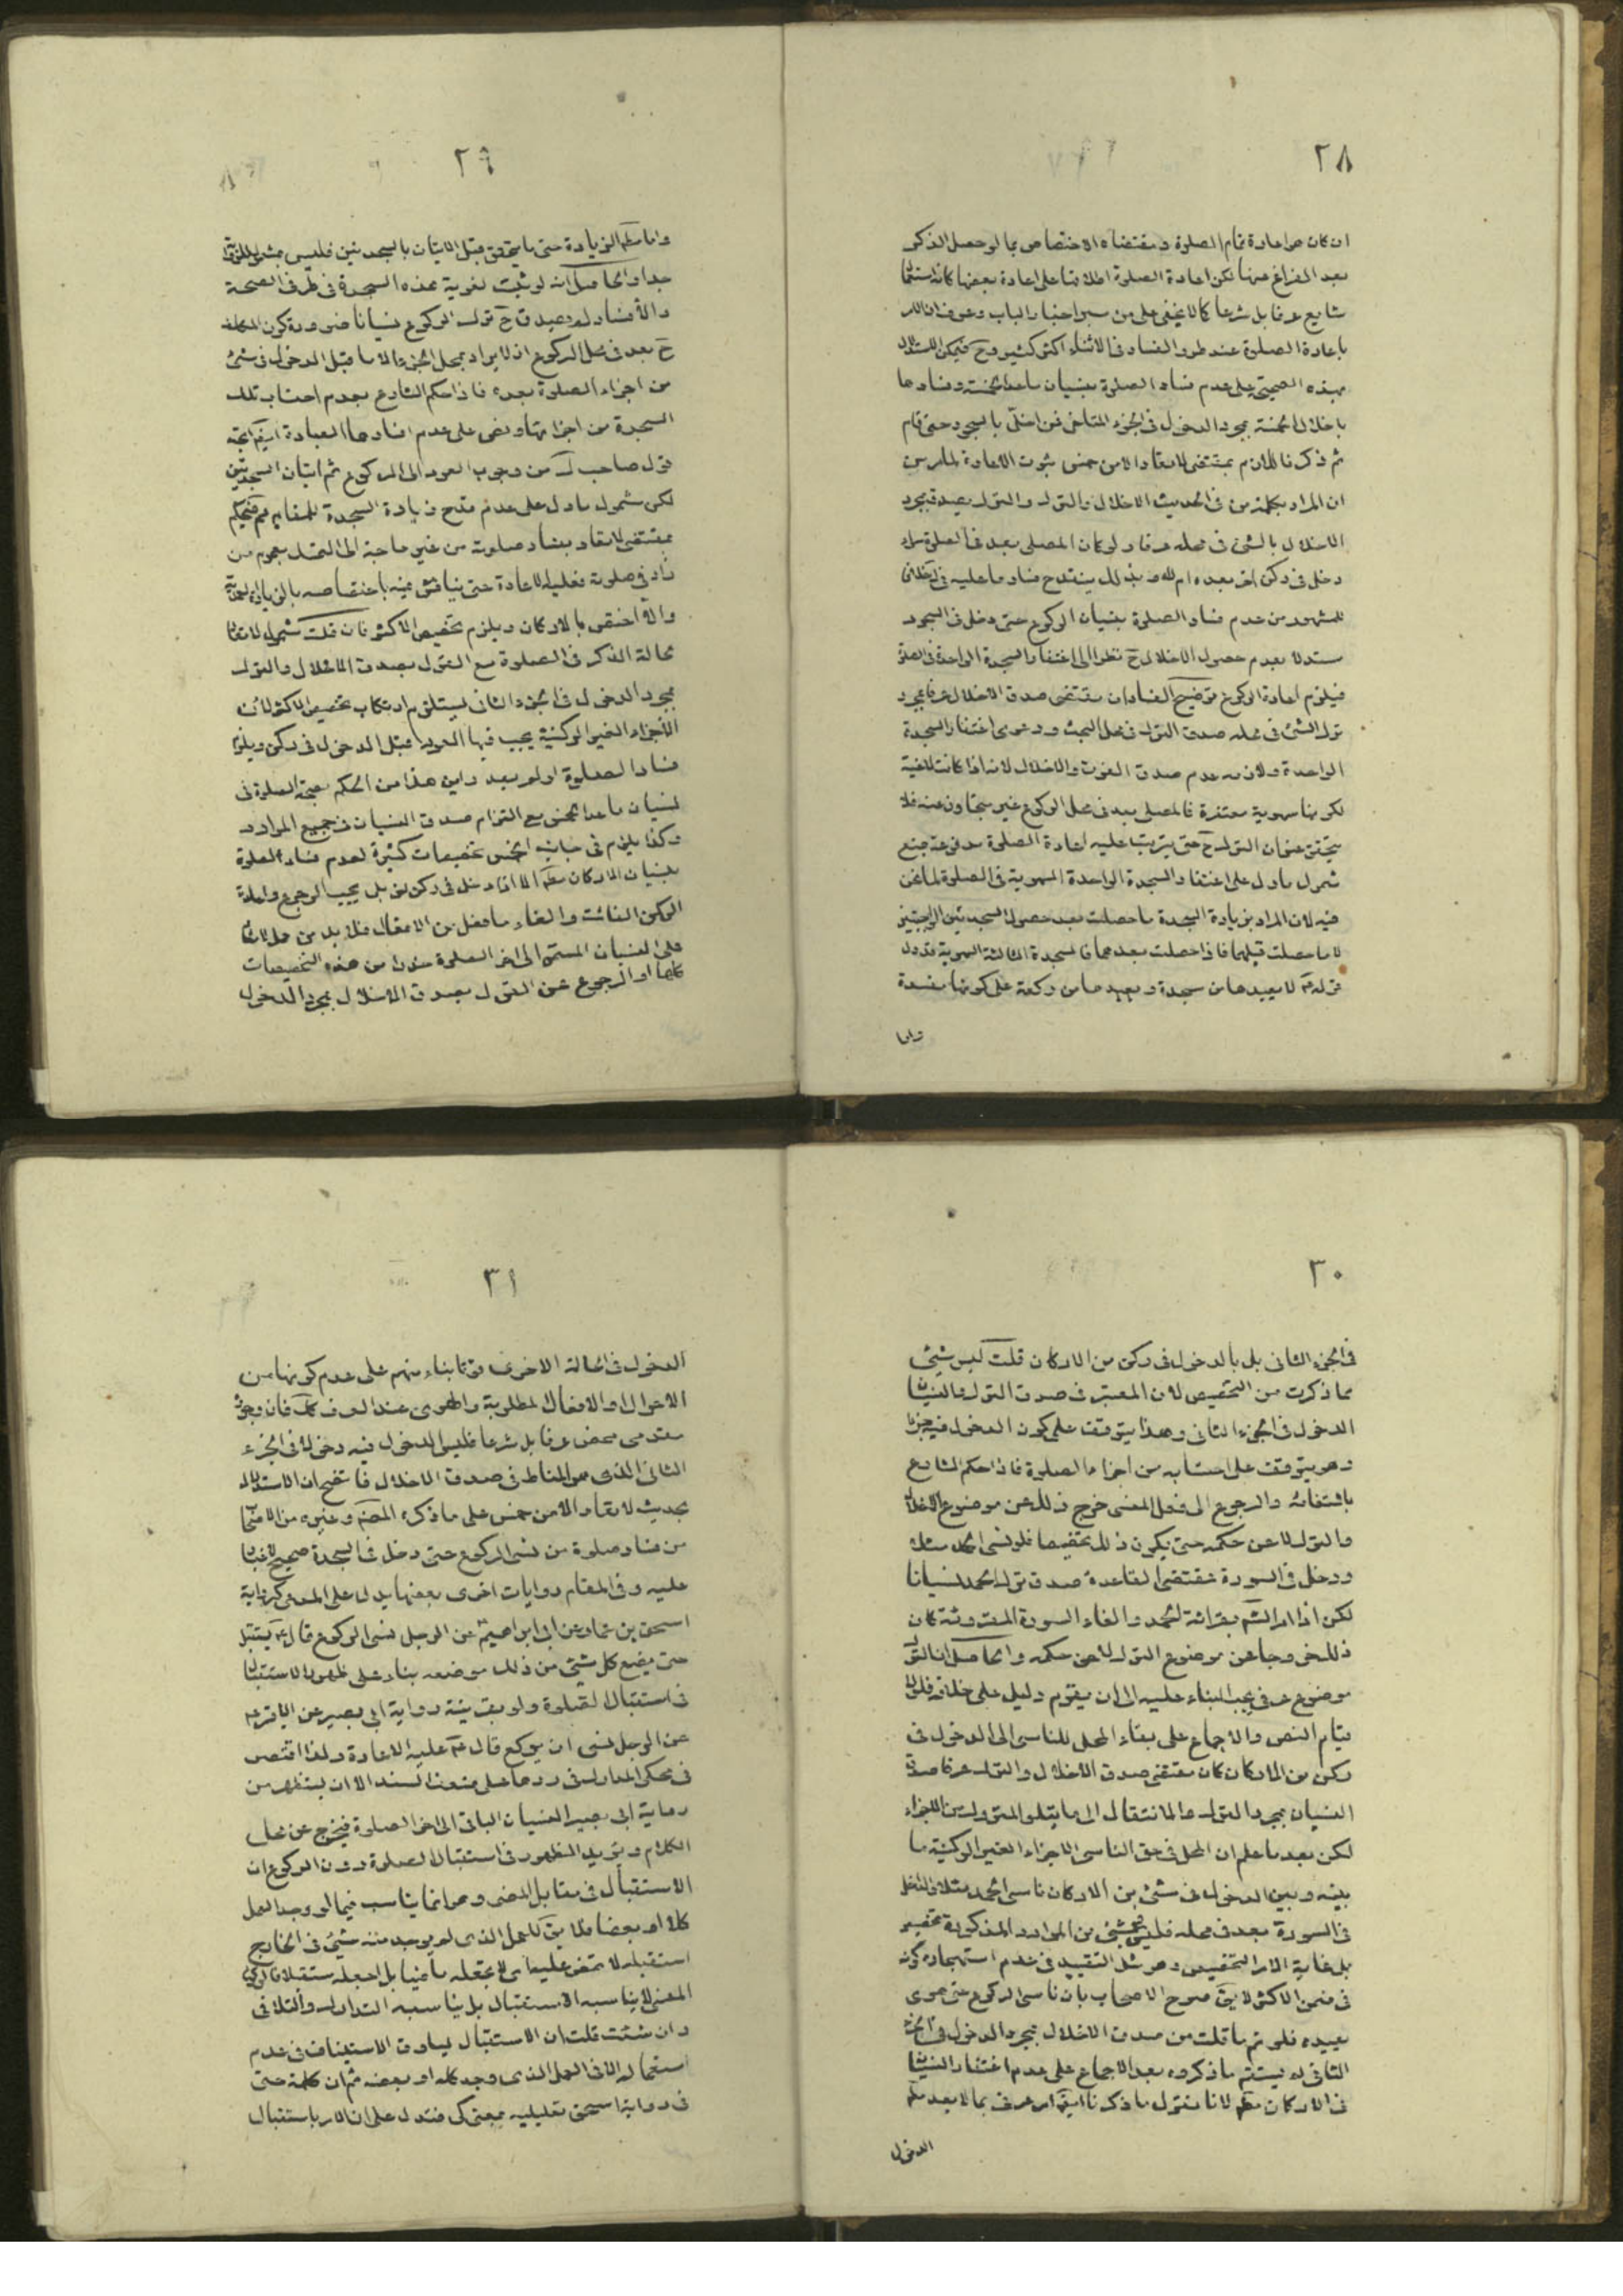 ٢٨
ان كان هو اعادة تمام الصلوة ومقتضاه الاختصاص بما لو حصل الذكر
بعد الفراغ عنها لكن اعادة الصلوة اطلاقها على اعادة بعضها كانه استعمال
شايع عرفا بل شرعا كما لا يخفى على من سبر اخبار الباب وعرف ان الامر
باعادة الصلوة عند طرو الفساد فى الاثناء اكثر كثير وح فيمكن الاستدلال
بهذه الصحيحة على عدم فساد الصلوة بنسيان ما عدا الخمسة وفسادها
باخلال الخمسة بمجرد الدخول فى الجزء المتاخر فمن اخل بالسجود حتى قام
ثم ذكر فاللازم بمقتضى لا تعاد الا من خمس ثبوت الاعادة لما
ان المراد بكلمة من فى الحديث الاخلال والترك والترك يصدق بمجرد
الاخلال بالشئ فى محله عرفا ولو كان المصلى بعد فى الصلوة سواء
دخل فى ركن اخر بعده ام لا وبذلك ينقدح فساد ما عليه
المشهور من عدم فساد الصلوة بنسيان الركوع حتى دخل فى السجود
مستدلا بعدم حصول الاخلال ح نظرا الى اغتفار السجدة الواحدة فى الصلوة
فيلزم اعادة الركوع توضيح الفساد ان مقتضى صدق الاخلال عرفا بمجرد
ترك الشئ فى محله صدق الترك فى محل البحث ودعوى اغتفار السجدة
الواحدة ولازمه عدم صدق الفوت والاخلال لانه اذا كانت لاغية
لكونها سهوية مغتفرة فالمصلى بعد فى محل الركوع غير متجاوز عنه فلا
يتحقق عنوان الترك ح حتى يترتب عليه اعادة الصلوة مدفوعة بمنع
شمول ما دل على اغتفار السجدة الواحدة السهوية فى الصلوة لما نحن
فيه لان المراد بزيادة السجدة ما حصلت بعد حصول السجدتين الواجبتين
لا ما حصلت قبلهما فاذا حصلت بعدهما فالسجدة الثالثة السهوية
قوله ع لا يعيدها من سجدة ويعيدها من ركعة على كونها مفسدة
واما
٢٩
واما مطلق الزيادة حتى ما يتحقق قبل الاتيان بالسجدتين فليس
جدا والحاصل انه لو ثبت لغوية هذه السجدة فى طرف الصحة
والافساد لم يصدق ح ترك الركوع نسيانا ضرورة كون المكلف
ح بعد فى محل الركوع اذ لا يراد بمحل الجزء الا ما قبل الدخول فى شئ
من اجزاء الصلوة بعده فاذا حكم الشارع بعدم احتساب تلك
السجدة من اجزائها ونص على عدم افسادها العبادة ايضا اتجه
قول صاحب ك من وجوب العود الى الركوع ثم اتيان السجدتين
لكن شمول ما دل على عدم قدح زيادة السجدة للمقام مم فيحكم
بمقتضى لا تعاد بفساد صلوته من غير حاجة الى التمسك بعموم من
زاد فى صلوته فعليه الاعادة حتى يناقش فيه باختصاصه بالزيادة العمدية
والا اختص بالاركان ويلزم تخصيص الاكثر فان قلت شمول لا تعاد
لحالة الذكر فى الصلوة مع القول بصدق الاخلال والترك
بمجرد الدخول فى الجزء الثانى ليستلزم ارتكاب تخصيص الاكثر لان
الاجزاء الغير الركنية يجب فيها العود قبل الدخول فى ركن
فساد الصلوة اولم يعد واين هذا من الحكم بصحة الصلوة فى
نسيان ما عدا الخمس مع التزام صدق النسيان فى جميع الموارد
وكذا يلزم فى جانب الخمس تخصيصات كثيرة لعدم فساد الصلوة
بنسيان الاركان مطلقا الا اذا دخل فى ركن اخر بل يجب الرجوع واعادة
الركن الفائت والغاء ما فعل من الافعال فلا بد من حمل لا تعاد
على النسيان المستمر الى اخر الصلوة حذرا من هذه التخصيصات
كلها او الرجوع عن القول بصدق الاخلال بمجرد الدخول
٣٠
فى الجزء الثانى بل بالدخول فى ركن من الاركان قلت ليس شئ
مما ذكرت من التخصيص لان المعتبر فى صدق الترك والنسيان
الدخول فى الجزء الثانى وهذا يتوقف على كون الدخول فيه جزءا
وهو يتوقف على احتسابه من اجزاء الصلوة فاذا حكم الشارع
بانتفائه والرجوع الى فعل المنسى خرج ذلك عن موضوع الاخلال
والترك لا عن حكمه حتى يكون ذلك تخصيصا فلو نسى الحمد مثلا
ودخل فى السورة فمقتضى القاعدة صدق ترك الحمد نسيانا
لكن اذا امر الشارع بقرائة الحمد والغاء السورة المقروئة كان
ذلك خروجا عن موضوع الترك لا عن حكمه والحاصل ان الترك
موضوع عرفى يجب البناء عليه الى ان يقوم دليل على خلافه فلولا
قيام النص والاجماع على بقاء المحل للناسى الى الدخول فى
ركن من الاركان كان مقتضى صدق الاخلال والترك عرفا صدق
النسيان بمجرد الترك والانتقال الى ما يتلو المتروك من الاجزاء
لكن بعد ما علم ان المحل فى حق الناسى الاجزاء الغير الركنية ما
بينه وبين الدخول فى شئ من الاركان ناسى الحمد مثلا اذا دخل
فى السورة بعد فى محله فليس شئ من الموارد المذكورة تخصيص
بل غاية الامر التخصيص وهو مثل التقييد فى عدم استهجان كونه
فى ضمن الاكثر لا يقال صرح الاصحاب بان ناسى الركوع حتى هوى
يعيده فلو تم ما قلت من صدق الاخلال بمجرد الدخول فى الجزء
الثانى لم يستقم ما ذكروه بعد الاجماع على عدم اغتفار النسيان
فى الاركان مطلقا لانا نقول ما ذكرنا ايضا امر عرفى بما لا يعد
الدخول
٣١
الدخول فى الحالة الاخرى فوتا بناء منهم على عدم كونها من
الاحوال او الافعال المطلوبة والهوى عند العرف كك فان وجوبه
مقدمى محض عرفا بل شرعا فليس الدخول فيه دخولا فى الجزء
الثانى الذى هو المناط فى صدق الاخلال فاتضح ان الاستدلال
بحديث لا تعاد الا من خمس على ما ذكره المصنف وغيره من الاصحاب
من فساد صلوة من نسى الركوع حتى دخل فى السجدة صحيح لا غبار
عليه وفى المقام روايات اخرى بعضها يدل على المدعى كرواية
اسحق بن عمار عن ابى ابراهيم ع عن الرجل نسى الركوع قال ع يستقبل
حتى يضع كل شئ من ذلك موضعه بناء على ظهور الاستقبال
فى استقبال الصلوة ولو بقرينة رواية ابى بصير عن الباقر ع
عن الرجل نسى ان يركع قال ع عليه الاعادة ولذا اقتصر
فى محكى المدارك فى ردها على ضعف السند الا ان يستظهر من
رواية ابى بصير النسيان الباقى الى اخر الصلوة فيخرج عن محل
الكلام ويؤيد الظهور فى استقبال الصلوة دون الركوع ان
الاستقبال فى مقابل المضى وهو انما يناسب فيما لو وجد العمل
كلا او بعضا فلا يق للعمل الذى لم يوجد منه شئ فى الخارج
استقبله لا تمض عليه اى لا تجعله ماضيا بل اجعله مستقبلا فالركوع
المنسى لا يناسبه الاستقبال بل يناسبه التدارك والتلافى
وان شئت قلت ان الاستقبال يساوق الاستيناف فى عدم
استعماله الا فى العمل الذى وجد كله او بعضه ثم ان كلمة حتى
فى رواية اسحق تعليلية بمعنى كى فتدل على ان الامر باستقبال